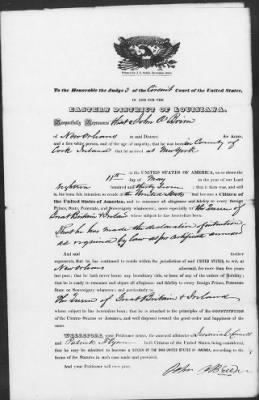 To the Honorable the Judge s of the Circuit Court of the United States,
IN AND FOR THE
EASTERN DISTRICT OF LOUISIANA.
Respectfully Represents That John O'Brien
of New Orleans in said District;
and a free white person, and of the age of majority, that he was born in County of
Cork Ireland that he arrived at New York
in the UNITED STATES OF AMERICA, on or about the
11th day of May in the year of our Lord
eighteen hundred and thirty seven; that it then was, and still
is, his bona fide intention to reside in the United States to become a Citizen of
the United States of America, and to renounce all allegiance and fidelity to every foreign
Prince, State, Potentate, and Sovereignty whatsoever; more especially to the Queen of
Great Britain & Ireland whose subject he has heretofore been.
That he has made the declaration of intention
as required by law as per certificate annexed
and
represents, that he has continued to reside within the jurisdiction of said UNITED STATES, to wit, at
New Orleans aforesaid, for more than five years
last past; that he hath never borne any hereditary title, or been of any of the orders of Nobility; that
he is ready to renounce and abjure all allegiance and fidelity to every foreign Prince, Potentate
State or Sovereignty whatever; and particularly to
The Queen of Great Britain & Ireland
whose subject he has heretofore been; that he is attached to the principles of the CONSTITUTION
of the United States of America, and well disposed toward the good order and happiness of
the same.
WHEREFORE, your Petitioner prays, the annexed affidavits of Jeremiah
Patrick Citizens of the United States being considered,
that he may be admitted to become a CITIZEN OF THE SAID UNITED STATES OF AMERICA, according to the forms of the
Statutes in such case made and provided.
And your Petitioner will ever pray,
John